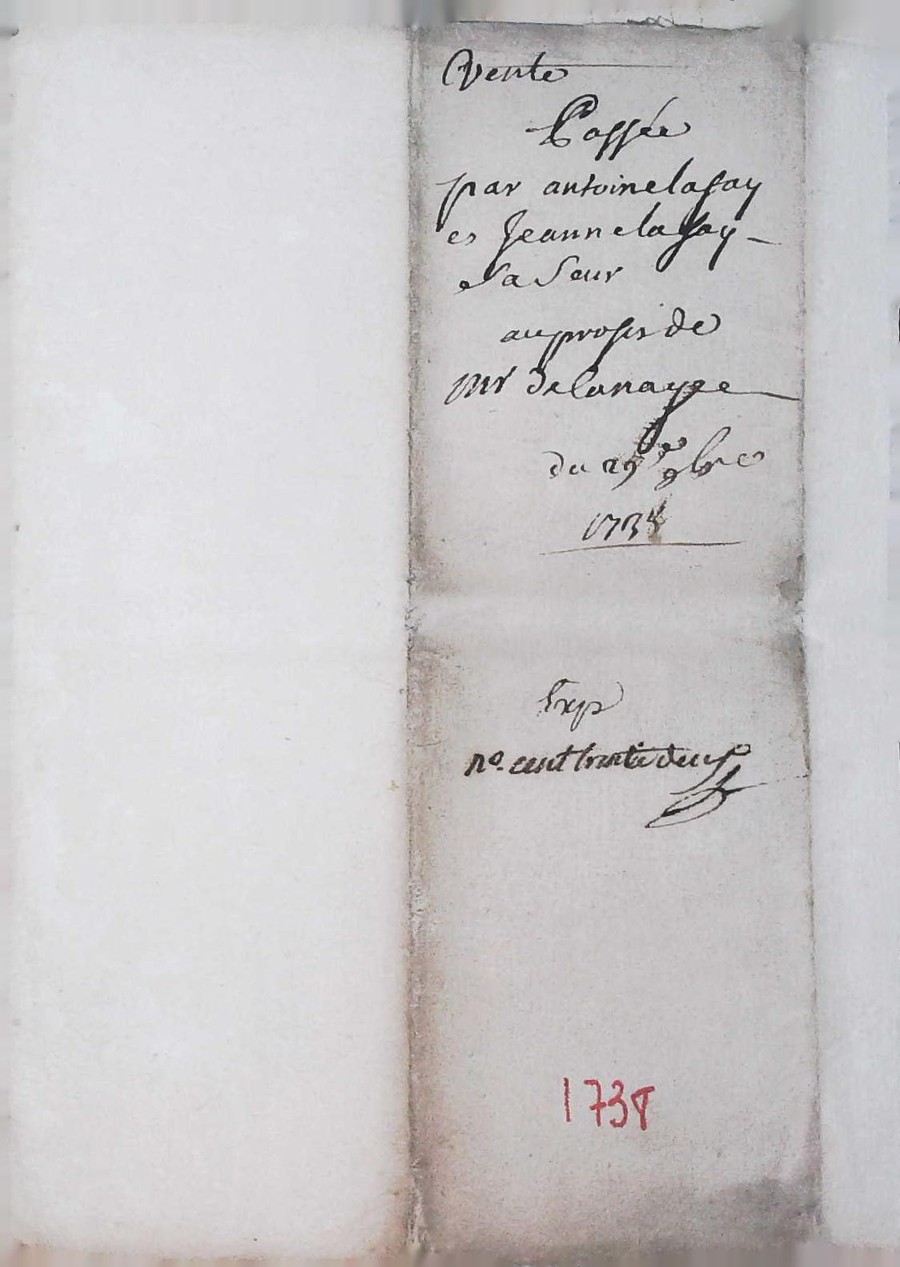 Vente
Passée
par antoine lafay
et Jeanne lafay
Sa Seur
au profit de
mr Delanayge
du 29e 9bre
1738
Exp
no. cent trente deux
1738